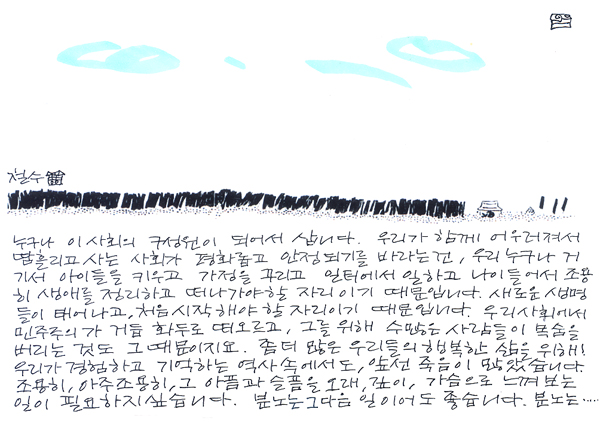 철수
누구나 이 사회의 구성원이 되어서 삽니다. 우리가 함께 어우러져서
땀흘리고 사는 사회가 평화롭고 안정되기를 바라는건, 우리 누구나 거
기서 아이들을 키우고 가정을 꾸리고 일터에서 일하고 나이들어서 조용
히 생애를 정리하고 떠나가야할 자리이기 때문입니다. 새로운 생명
들이 태어나고, 처음 시작해야 할 자리이기 때문입니다. 우리사회에서
민주주의가 거듭 화두로 떠오르고, 그를 위해 수많은 사람들이 목숨을
버리는 것도 그 때문이지요. 좀더 많은 우리들의 행복한 삶을 위해!
우리가 경험하고 기억하는 역사속에서도, 앞선 죽음이 많았습니다.
조용히, 아주조용히, 그 아픔과 슬픔을 오래, 깊이, 가슴으로 느껴보는
일이 필요하지싶습니다. 분노는 그다음 일이어도 좋습니다. 분노는.....